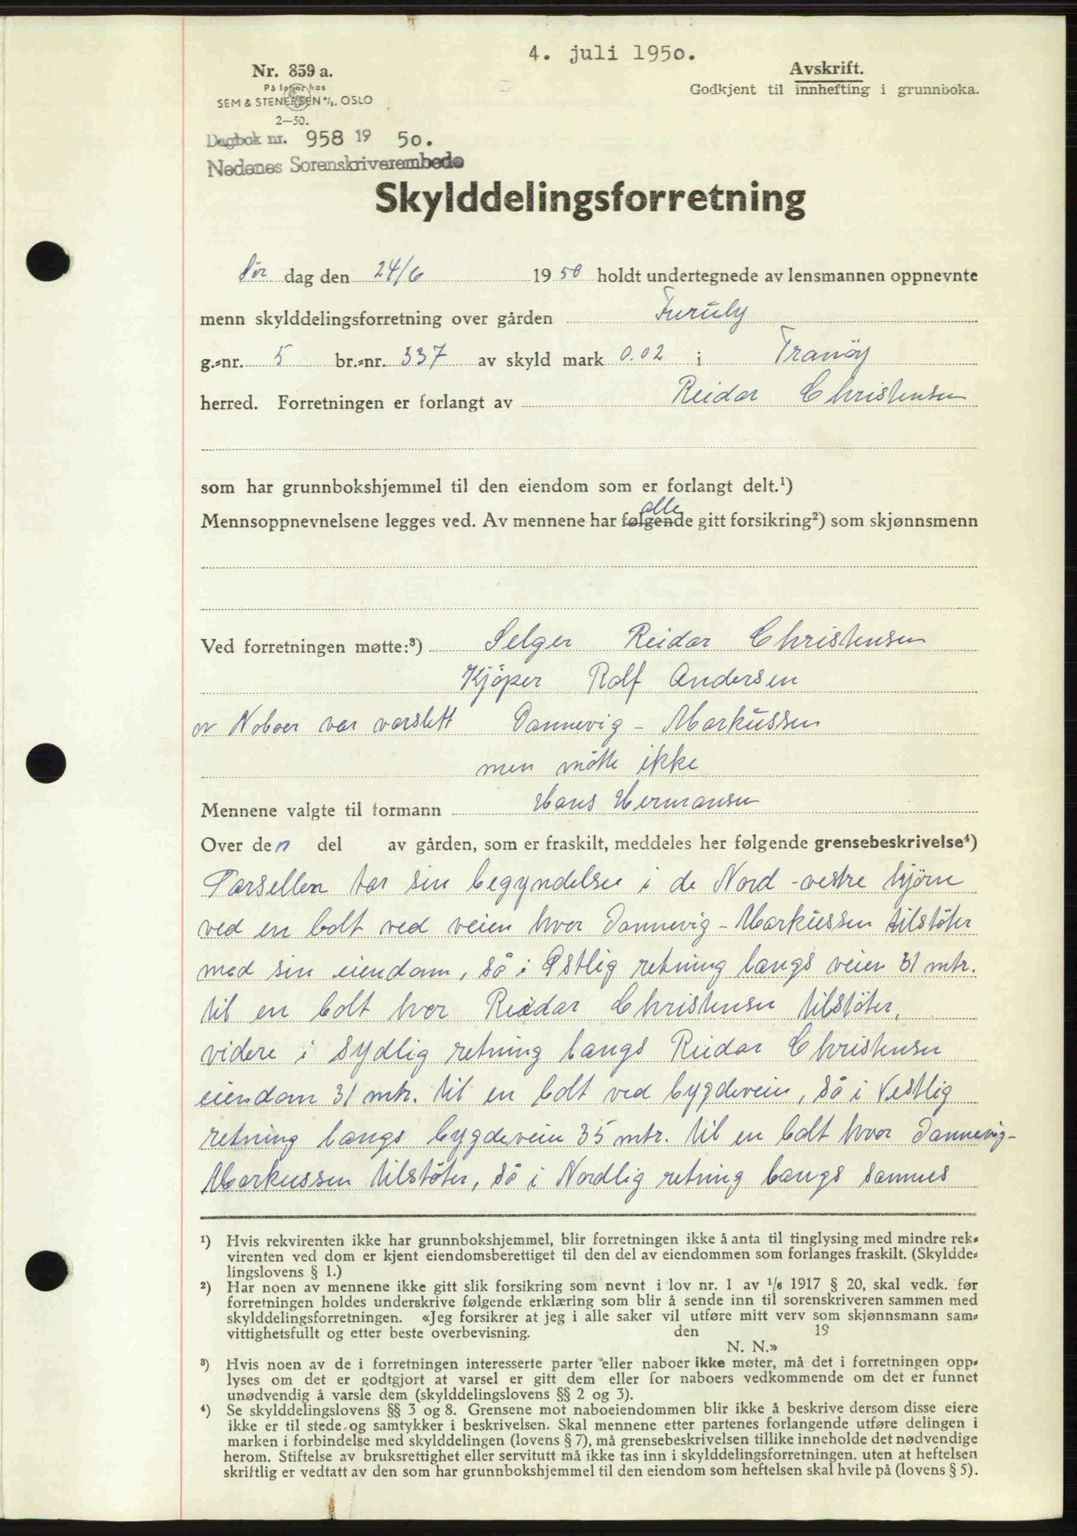 4. juli 1950.
Nr. 859 a.
På lager hos
SEM & STENERSEN A/S, OSLO
2—50.
Avskrift.
Godkjent til innhefting i grunnboka.
Dagbok nr. 958 19 50.
Nedenes Sorenskriverembede
Skylddelingsforretning
Lør dag den 24/6 1950 holdt undertegnede av lensmannen oppnevnte
menn skylddelingsforretning over gården Furuly
g.-nr. 5 br.-nr. 337 av skyld mark 0.02 i Tromøy
herred. Forretningen er forlangt av Reidar Christensen
som har grunnbokshjemmel til den eiendom som er forlangt delt.¹)
alle
Mennsoppnevnelsene legges ved. Av mennene har følgende gitt forsikring²) som skjønnsmenn
Ved forretningen møtte:³) Selger Reidar Christensen
Kjöper Rolf Andersen
av Naboer var varslett Dannevig - Markussen
men mötte ikke
Mennene valgte til formann Hans Hermansen
Over den del av gården, som er fraskilt, meddeles her følgende grensebeskrivelse⁴)
Parsellen tar sin begyndelse i de Nord-vestre hjörne
ved en bolt ved veien hvor Dannevig - Markussen tilstöter
med sin eiendom, så i Östlig retning langs veien 31 mtr.
til en bolt hvor Reidar Christensen tilstöter,
videre i Sydlig retning langs Reidar Christensen
eiendom 31 mtr. til en bolt ved bygdeveien, så i Vestlig
retning langs bygdeveien 35 mtr. til en bolt hvor Dannevig-
Markussen tilstöter, så i Nordlig retning langs sammes
¹) Hvis rekvirenten ikke har grunnbokshjemmel, blir forretningen ikke å anta til tinglysing med mindre rek-
virenten ved dom er kjent eiendomsberettiget til den del av eiendommen som forlanges fraskilt. (Skyldde-
lingslovens § 1.)
²) Har noen av mennene ikke gitt slik forsikring som nevnt i lov nr. 1 av 1/6 1917 § 20, skal vedk. før
forretningen holdes underskrive følgende erklæring som blir å sende inn til sorenskriveren sammen med
skylddelingsforretningen. «Jeg forsikrer at jeg i alle saker vil utføre mitt verv som skjønnsmann sam-
vittighetsfullt og etter beste overbevisning. den 19
N. N.»
³) Hvis noen av de i forretningen interesserte parter eller naboer ikke møter, må det i forretningen opp-
lyses om det er godtgjort at varsel er gitt dem eller for naboers vedkommende om det er funnet
unødvendig å varsle dem (skylddelingslovens §§ 2 og 3).
⁴) Se skylddelingslovens §§ 3 og 8. Grensene mot naboeiendommen blir ikke å beskrive dersom disse eiere
ikke er til stede og samtykker i beskrivelsen. Skal mennene etter partenes forlangende utføre delingen i
marken i forbindelse med skylddelingen (lovens § 7), må grensebeskrivelsen tillike inneholde det nødvendige
herom. Stiftelse av bruksrettighet eller servitutt må ikke tas inn i skylddelingsforretningen, uten at heftelsen
skriftlig er vedtatt av den som har grunnbokshjemmel til den eiendom som heftelsen skal hvile på (lovens § 5).